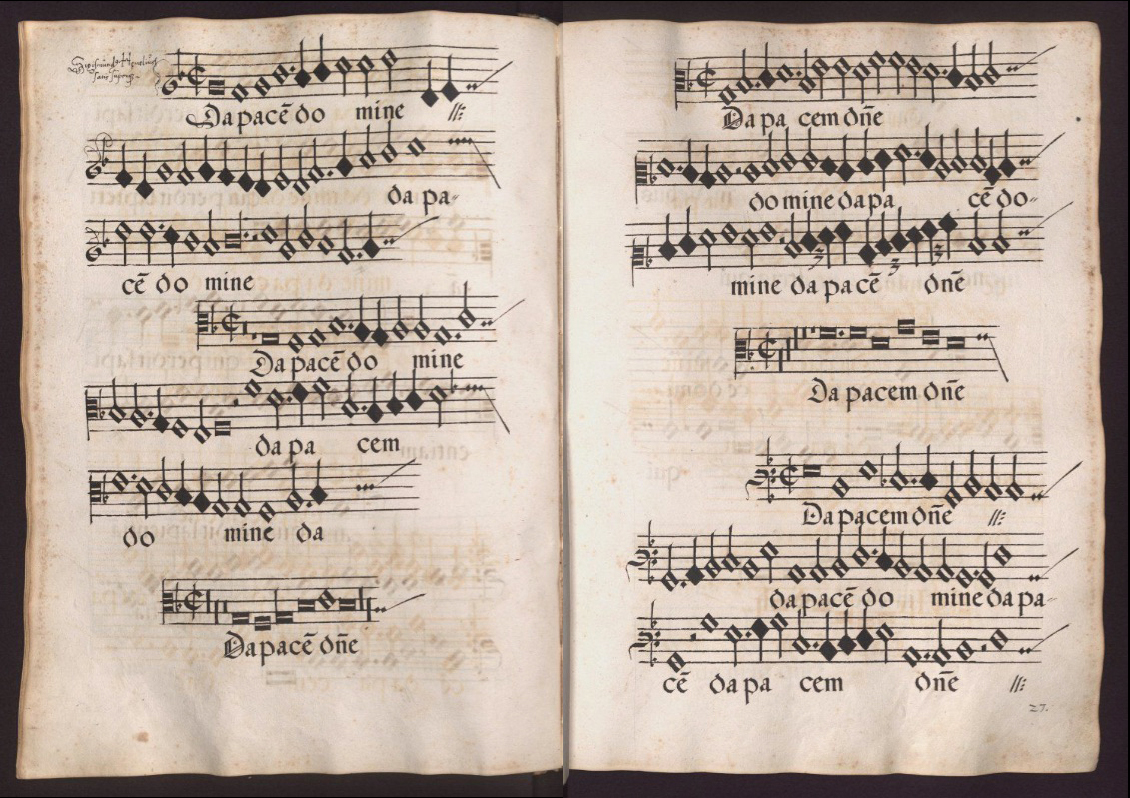 Da pacē do mine
da pa-
cē do mine
Da pacē do mine
da pa cem
do mine da
Da pacē dn̄e
Da pa cem dn̄e
do mine da pa cē do-
mine da pa cē dn̄e
3 3 3
Da pacem dn̄e
Da pacem dn̄e
da pacē do mine da pa-
cē da pa cem dn̄e
27.